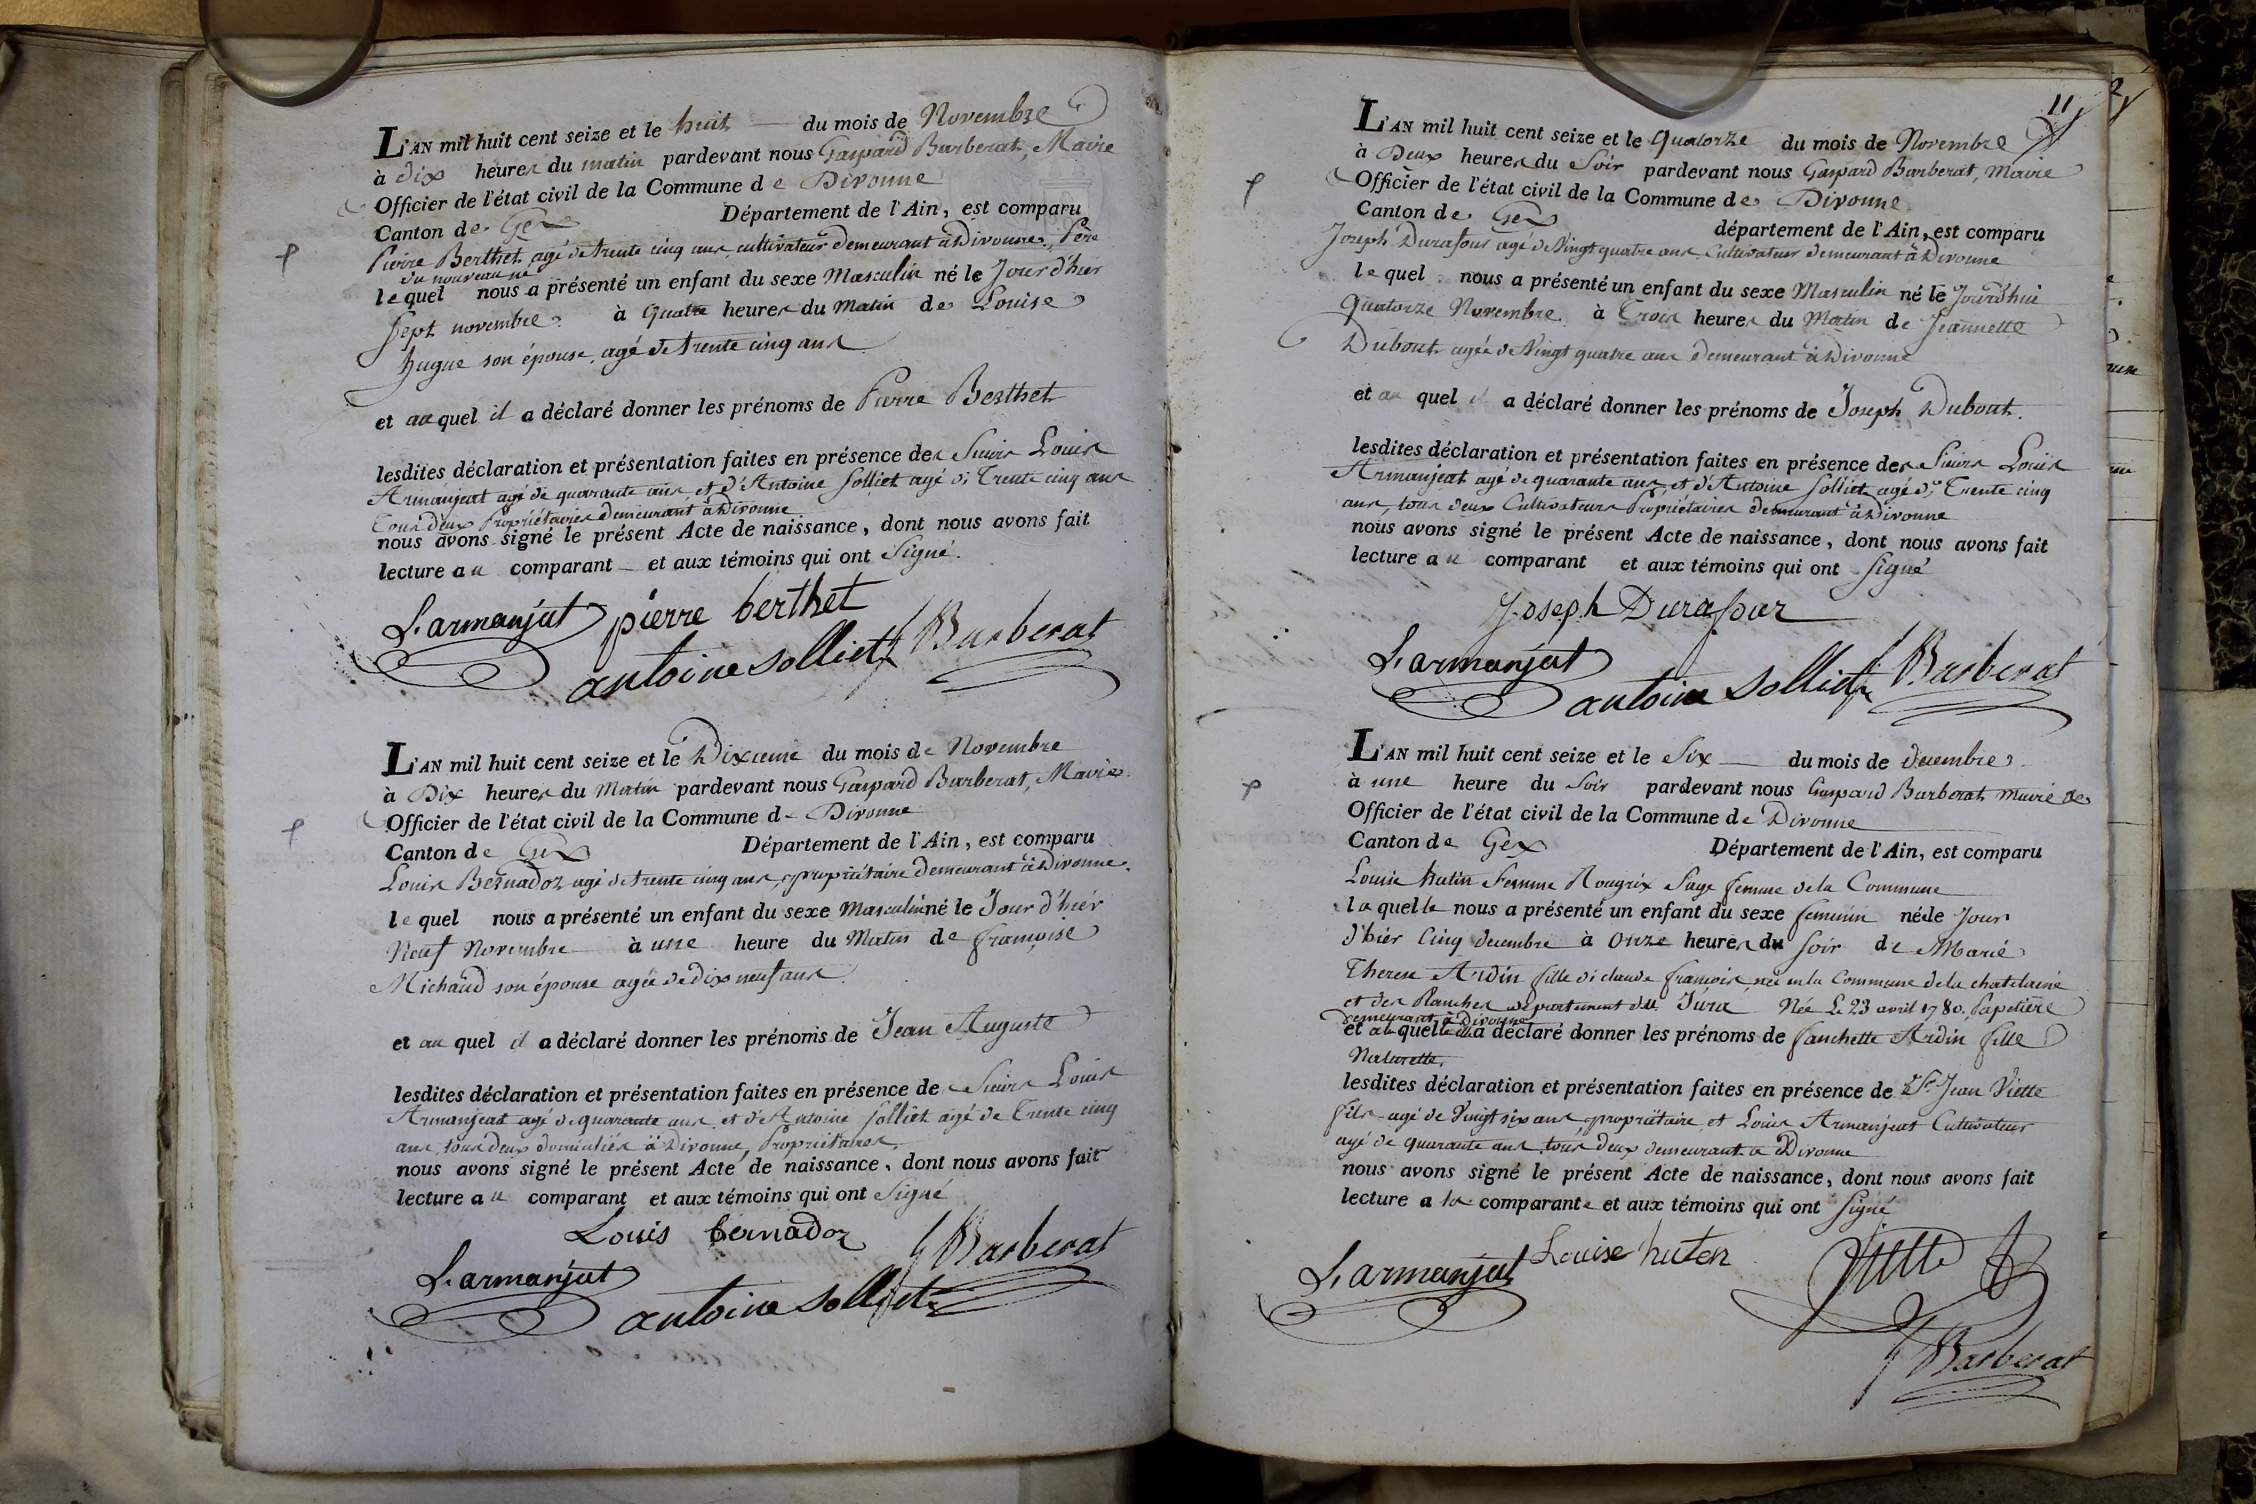 L'AN mil huit cent seize et le huit du mois de Novembre
à dix heures du matin pardevant nous Gaspard Barberat, Maire
Officier de l'état civil de la Commune de Divonne
Canton de Gex Département de l'Ain, est comparu
Pierre Berthet agé de trente cinq ans, cultivateur demeurant à Divonne, Père
du nouveau né
lequel nous a présenté un enfant du sexe Masculin né le Jour d'hier
Sept novembre à Quatre heures du Matin de Louise
hugue son épouse agé de trente cinq ans
et au quel il a déclaré donner les prénoms de Pierre Berthet
lesdites déclaration et présentation faites en présence des Sieurs Louis
Armanjeat agé de quarante ans et d'Antoine Solliet agé de Trente cinq ans
Tous deux Propriétaires demeurant à Divonne
nous avons signé le présent Acte de naissance, dont nous avons fait
lecture au comparant et aux témoins qui ont Signé.
L. armanjat pierre berthet
antoine solliet Barberat
L'AN mil huit cent seize et le Dixieme du mois de Novembre
à Dix heures du Matin pardevant nous Gaspard Barberat, Maire
Officier de l'état civil de la Commune de Divonne
Canton de Gex Département de l'Ain, est comparu
Louis Bernadoz agé de trente cinq ans, propriétaire demeurant à Divonne.
lequel nous a présenté un enfant du sexe Masculin né le Jour d'hier
Neuf Novembre à une heure du Matin de françoise
Michaud son épouse agée de dix neuf ans
et au quel il a déclaré donner les prénoms de Jean Auguste
lesdites déclaration et présentation faites en présence de Sieurs Louis
Armanjeat agé de quarante ans et d'Antoine Solliet agé de Trente cinq
ans, tous deux domiciliés à Divonne, Propriétaires
nous avons signé le présent Acte de naissance, dont nous avons fait
lecture au comparant et aux témoins qui ont Signé
Louis bernadoz
L. armanjat Barberat
antoine solliet
11
L'AN mil huit cent seize et le Quatorze du mois de Novembre
à Deux heures du Soir pardevant nous Gaspard Barberat, Maire
Officier de l'état civil de la Commune de Divonne
Canton de Gex département de l'Ain, est comparu
Joseph Durafour agé de Vingt quatre ans Cultivateur demeurant à Divonne
lequel nous a présenté un enfant du sexe Masculin né le Jourd'hui
Quatorze Novembre à Trois heures du Matin de Jeannette
Dubout agée de Vingt quatre ans demeurant à Divonne
et au quel il a déclaré donner les prénoms de Joseph Dubout.
lesdites déclaration et présentation faites en présence des Sieurs Louis
Armanjeat agé de quarante ans et d'Antoine Solliet agé de Trente cinq
ans, tous deux Cultivateurs Propriétaires demeurant à Divonne
nous avons signé le présent Acte de naissance, dont nous avons fait
lecture au comparant et aux témoins qui ont Signé
Joseph Durafour
L. armanjat Barberat
antoine solliet
L'AN mil huit cent seize et le Six du mois de decembre
à une heure du Soir pardevant nous Gaspard Barberat Maire de
Officier de l'état civil de la Commune de Divonne
Canton de Gex Département de l'Ain, est comparu
Louise hutin femme Rougrix Sage femme de la Commune
laquelle nous a présenté un enfant du sexe feminin né le Jour
d'hier Cinq decembre à Onze heures du Soir de Marie
Therese Ardin fille de claude françois née en la Commune de la chatelaine
et des Planches departement du Jura Née Le 23 avril 1780, Papetière
demeurant à Divonne
et a la quelle elle a déclaré donner les prénoms de fanchette Ardin fille
Naturelle.
lesdites déclaration et présentation faites en présence de Sr. Jean Viette
fils agé de Vingt six ans, propriétaire et Louis Armanjeat Cultivateur
agé de quarante ans tous deux demeurant a Divonne
nous avons signé le présent Acte de naissance, dont nous avons fait
lecture a la comparante et aux témoins qui ont Signé
L. armanjat Louise huten Viette
Barberat